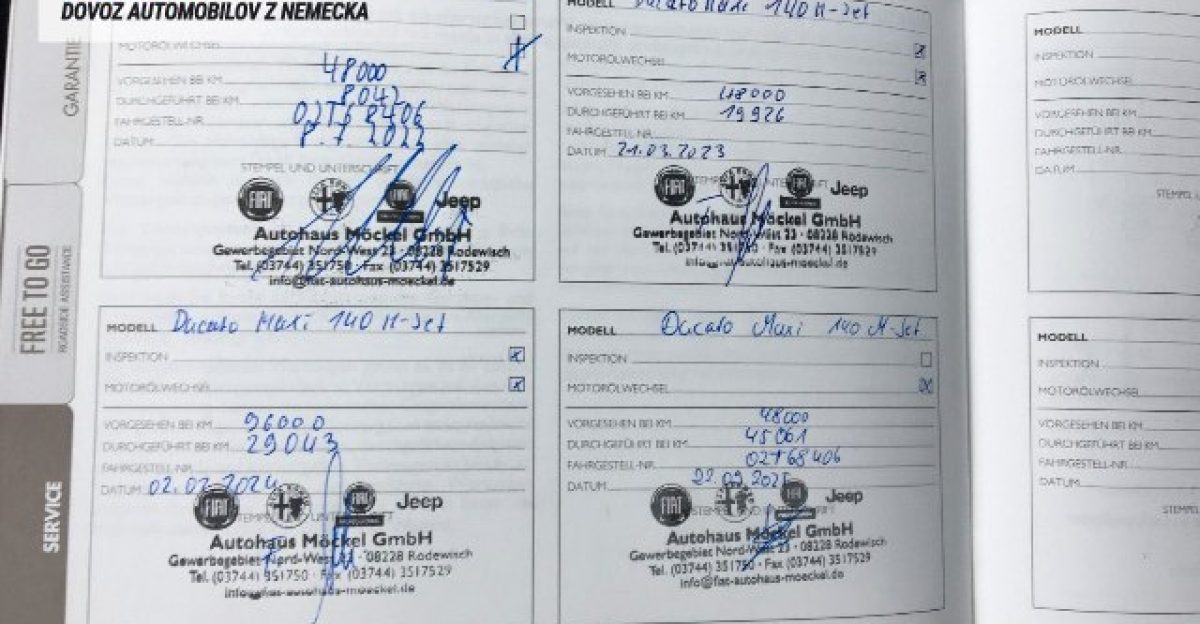 DOVOZ AUTOMOBILOV Z NEMECKA
GARANTIE
FREE TO GO
ROADSIDE ASSISTANCE
SERVICE
MOTORÖLWECHSEL
VORGESEHEN BEI KM 48000
DURCHGEFÜHRT BEI KM 8042
FAHRGESTELL-NR. 02T68406
DATUM 8.7.2022
STEMPEL UND UNTERSCHRIFT
FIAT
Jeep
Autohaus Möckel GmbH
Gewerbegebiet Nord-West 23 · 08228 Rodewisch
Tel. (03744) 351750 · Fax (03744) 3517529
info@fiat-autohaus-moeckel.de
MODELL Ducato Maxi 140 M-Jet
INSPEKTION
MOTORÖLWECHSEL
VORGESEHEN BEI KM 48000
DURCHGEFÜHRT BEI KM 19926
FAHRGESTELL-NR.
DATUM 21.03.2023
FIAT
Jeep
Autohaus Möckel GmbH
Gewerbegebiet Nord-West 23 · 08228 Rodewisch
Tel. (03744) 351750 · Fax (03744) 3517529
info@fiat-autohaus-moeckel.de
MODELL Ducato Maxi 140 M-Jet
INSPEKTION
MOTORÖLWECHSEL
VORGESEHEN BEI KM 96000
DURCHGEFÜHRT BEI KM 29043
FAHRGESTELL-NR.
DATUM 02.02.2024
FIAT
Jeep
Autohaus Möckel GmbH
Gewerbegebiet Nord-West 23 · 08228 Rodewisch
Tel. (03744) 351750 · Fax (03744) 3517529
info@fiat-autohaus-moeckel.de
MODELL Ducato Maxi 140 M-Jet
INSPEKTION
MOTORÖLWECHSEL
VORGESEHEN BEI KM 48000
DURCHGEFÜHRT BEI KM 45061
FAHRGESTELL-NR. 02T68406
DATUM
FIAT
Jeep
Autohaus Möckel GmbH
Gewerbegebiet Nord-West 23 · 08228 Rodewisch
Tel. (03744) 351750 · Fax (03744) 3517529
info@fiat-autohaus-moeckel.de
MODELL
INSPEKTION
MOTORÖLWECHSEL
VORGESEHEN BEI KM
DURCHGEFÜHRT BEI KM
FAHRGESTELL-NR.
DATUM
MODELL
INSPEKTION
MOTORÖLWECHSEL
VORGESEHEN BEI KM
DURCHGEFÜHRT BEI KM
FAHRGESTELL-NR.
DATUM